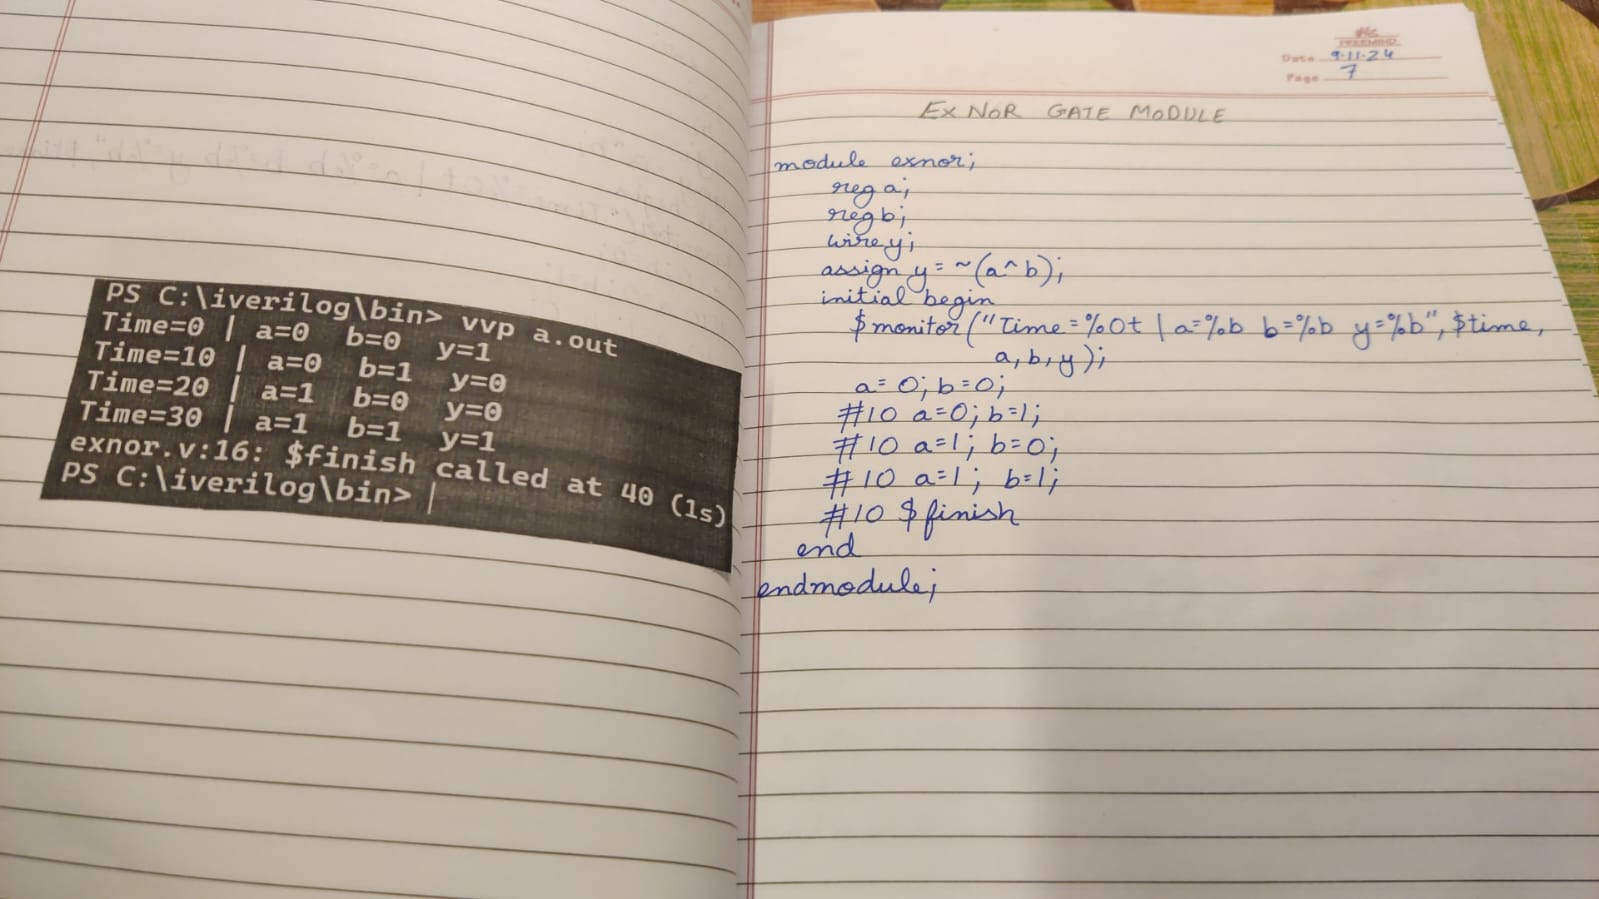 PS C:\iverilog\bin> vvp a.out
Time=0 | a=0 b=0 y=1
Time=10 | a=0 b=1 y=0
Time=20 | a=1 b=0 y=0
Time=30 | a=1 b=1 y=1
exnor.v:16: $finish called at 40 (1s)
PS C:\iverilog\bin> |
Date 9-11-24
Page 7
EX NOR GATE MODULE
module exnor;
reg a;
reg b;
wire y;
assign y = ~(a^b);
initial begin
$monitor("Time=%0t | a=%b b=%b y=%b", $time,
a, b, y);
a=0; b=0;
#10 a=0; b=1;
#10 a=1; b=0;
#10 a=1; b=1;
#10 $finish
end
endmodule;